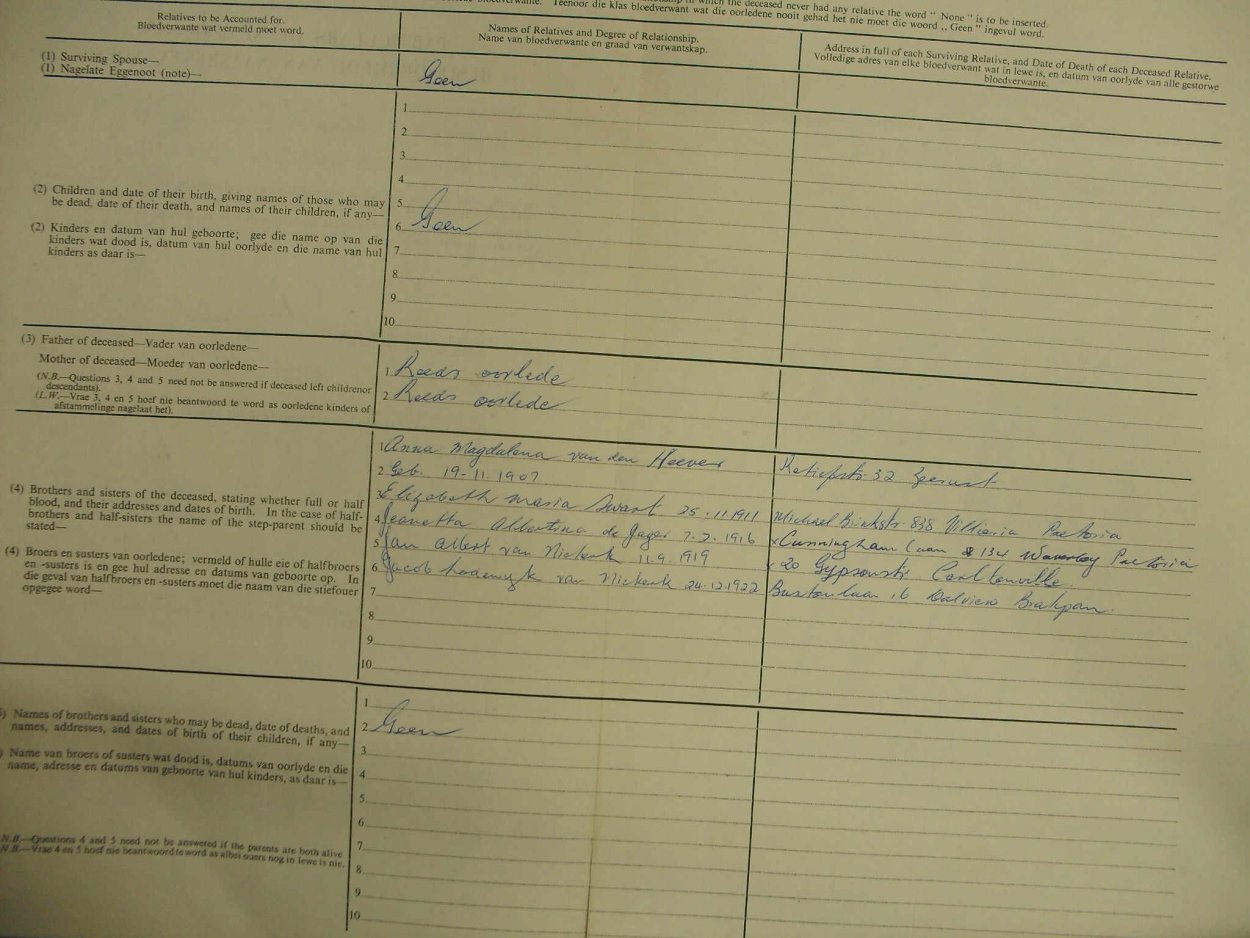 in which the deceased never had any relative the word " None " is to be inserted.
Bloedverwante. Teenoor die klas bloedverwant wat die oorledene nooit gehad het nie moet die woord ,, Geen " ingevul word.
Relatives to be Accounted for.
Bloedverwante wat vermeld moet word.
Names of Relatives and Degree of Relationship.
Name van bloedverwante en graad van verwantskap.
Address in full of each Surviving Relative, and Date of Death of each Deceased Relative.
Volledige adres van elke bloedverwant wat in lewe is, en datum van oorlyde van alle gestorwe
bloedverwante.
(1) Surviving Spouse—
(1) Nagelate Eggenoot (note)—
Geen
1
2
3
4
(2) Children and date of their birth, giving names of those who may
be dead, date of their death, and names of their children, if any—
5
6 Geen
(2) Kinders en datum van hul geboorte; gee die name op van die
kinders wat dood is, datum van hul oorlyde en die name van hul
kinders as daar is—
7
8
9
10
(3) Father of deceased—Vader van oorledene—
Mother of deceased—Moeder van oorledene—
(N.B.—Questions 3, 4 and 5 need not be answered if deceased left childrenor
descendants).
(L.W.—Vrae 3, 4 en 5 hoef nie beantwoord te word as oorledene kinders of
afstammelinge nagelaat het).
1 Reeds oorlede
2 Reeds oorlede
(4) Brothers and sisters of the deceased, stating whether full or half
blood, and their addresses and dates of birth. In the case of half-
brothers and half-sisters the name of the step-parent should be
stated—
(4) Broers en susters van oorledene; vermeld of hulle eie of halfbroers
en -susters is en gee hul adresse en datums van geboorte op. In
die geval van halfbroers en -susters moet die naam van die stiefouer
opgegee word—
1 Anna Magdalena van den Heever Retiefstr 32 Zeerust
2 Geb. 19-11-1907
3 Elizabeth Maria Swart 25.11.1911 Michael Brinkstr. 838 Villieria Pretoria
4 Jeanetta Albertina de Jager 7.2.1916 x Cunningham laan 134 Waverley Pretoria
5 Jan Albert van Niekerk 11.9.1919 x 20 Carltonville
6 Jacob Lodewyk van Niekerk 24.12.1922 16 Dalview Brakpan.
7
8
9
10
Names of brothers and sisters who may be dead, date of deaths, and
names, addresses, and dates of birth of their children, if any—
Name van broers of susters wat dood is, datums van oorlyde en die
name, adresse en datums van geboorte van hul kinders, as daar is—
1
2 Geen
3
4
5
6
N.B.—Questions 4 and 5 need not be answered if the parents are both alive
N.B.—Vrae 4 en 5 hoef nie beantwoord te word as albei ouers nog in lewe is nie.
7
8
9
10